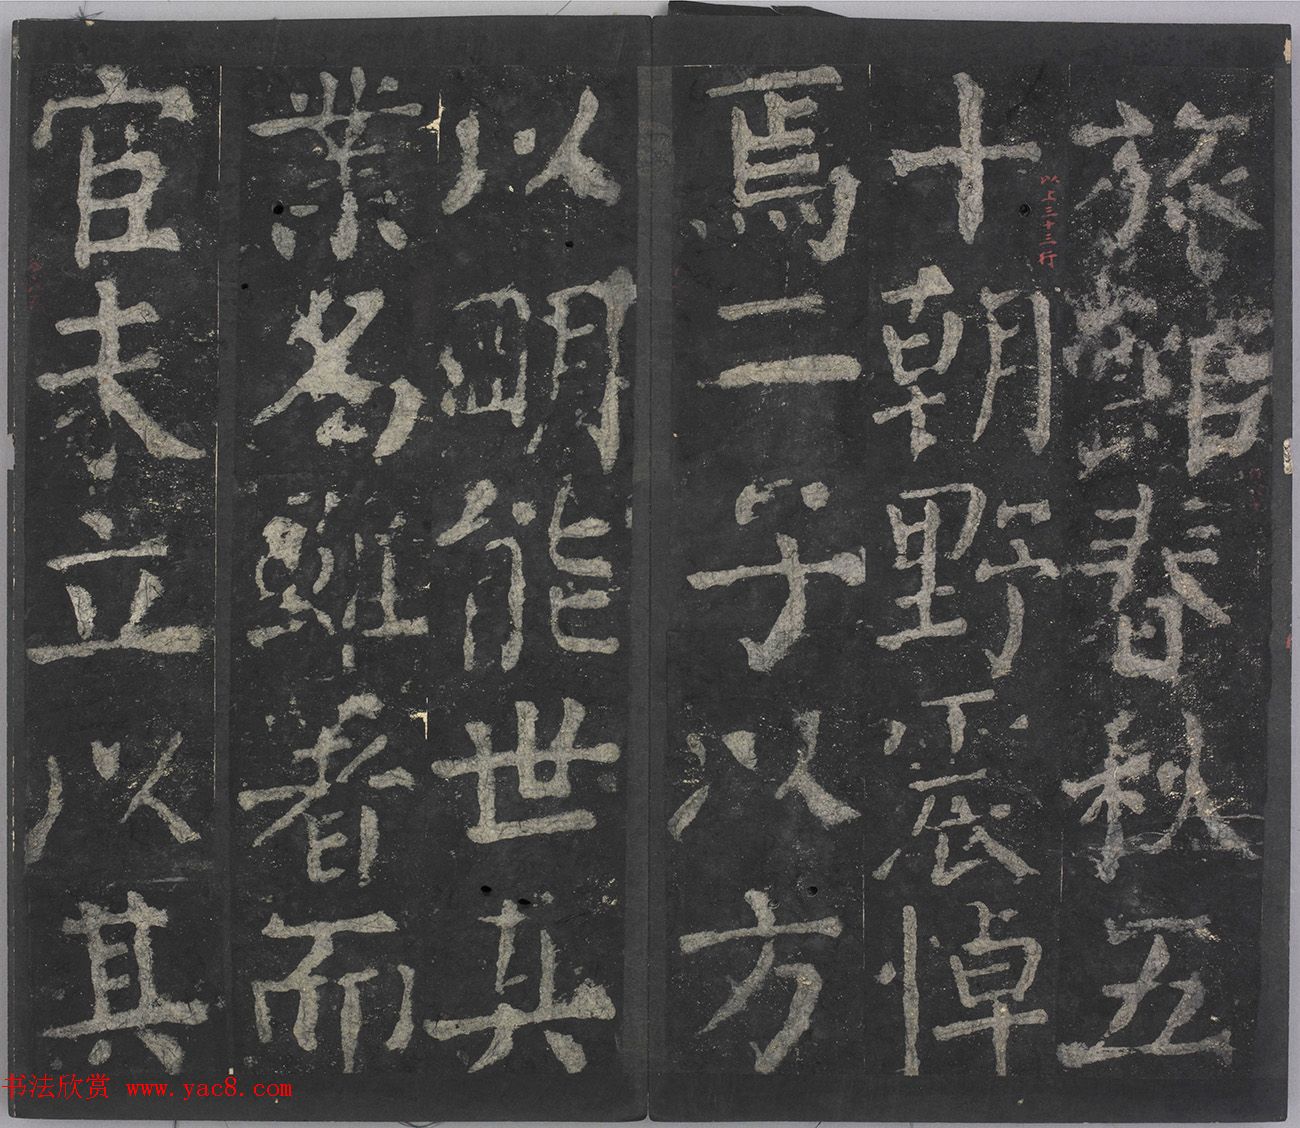 旅館春秋五
十朝野震悼
焉二子以方
以明能世其
業為難者而
官未立以其
以上三十三行
书法欣赏 www.yac8.com